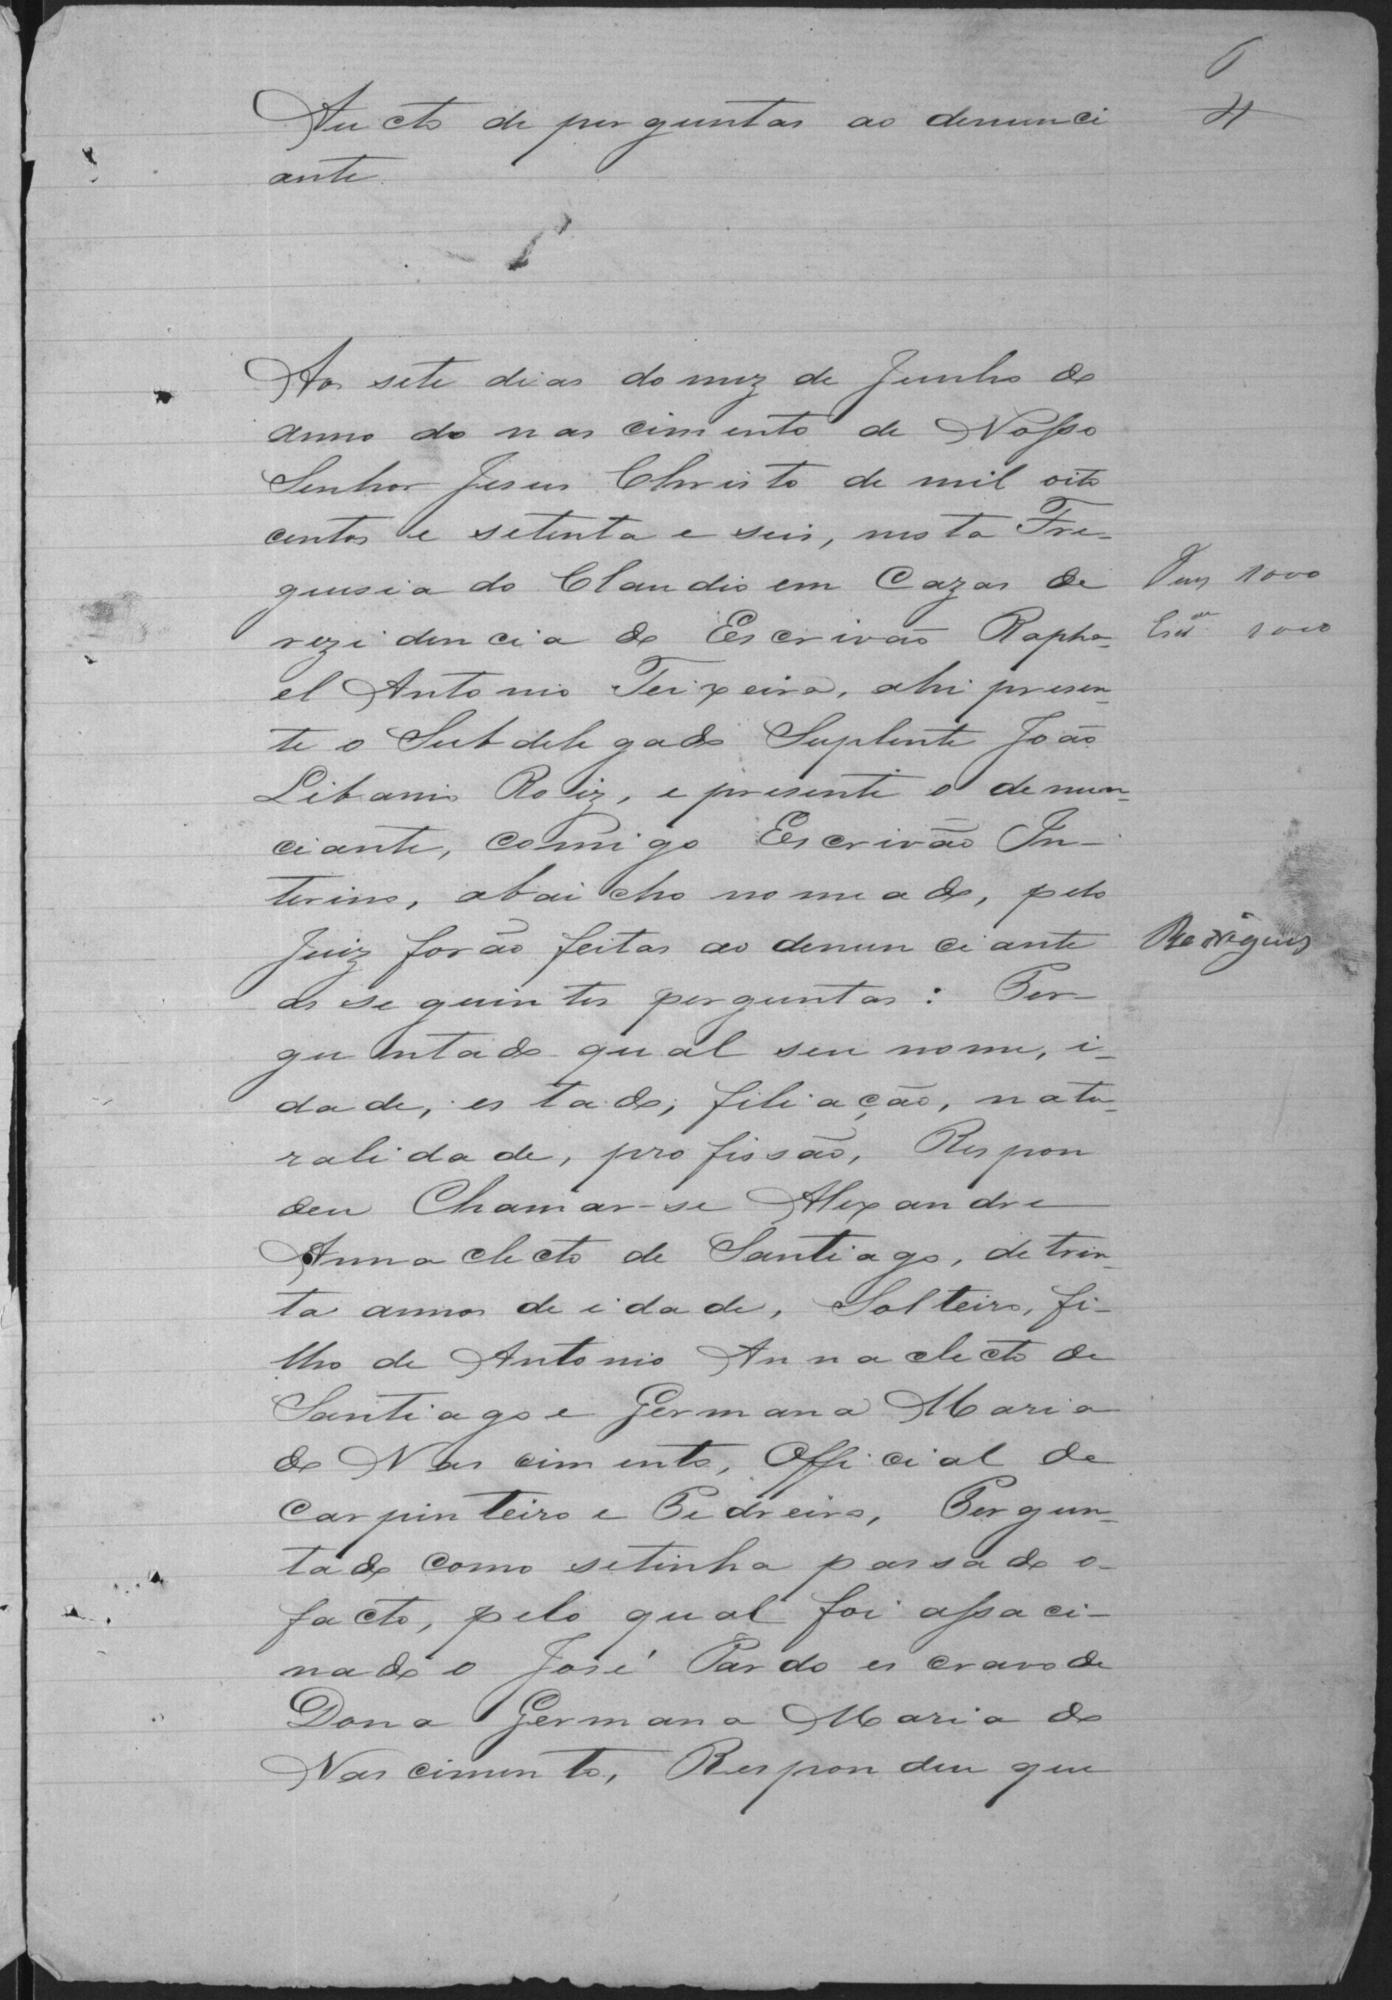 6
4
Aucto de perguntas ao denunci
ante
Aos sete dias do mez de Junho do
anno do nascimento de Nosso
Senhor Jesus Christo de mil oito
centos e setenta e seis, nesta Fre-
guesia do Claudio em Cazas de
Juiz 1000
rezidencia do Escrivão Rapha-
Esc.am 1000
el Antonio Teixeira, ahi presen-
te o Subdelegado Suplente João
Libanio Roiz, e presente o denun-
ciante, comigo Escrivão In-
terino, abaicho nomeado, pelo
Juiz forão feitas ao denunciante
Rodrigues
as seguintes perguntas: Per-
guntado qual seu nome, i-
dade, estado, filiação, natu-
ralidade, profissão, Respon
deu Chamar-se Alexandre
Annaclecto de Santiago, de trin-
ta annos de idade, Solteiro, fi-
lho de Antonio Annaclecto de
Santiago e Germana Maria
do Nascimento, Official de
Carpinteiro e Pedreiro, Pergun-
tado como se tinha passado o
facto, pelo qual foi assaci-
nado o José Pardo escravo de
Dona Germana Maria do
Nascimento, Respondeu que